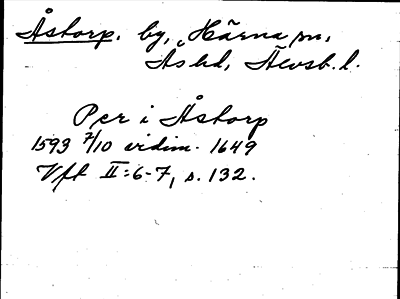 Åstorp. by, Härna sn.
Ås hd, Älvsb. l.
Per i Åstorp
1593 7/10 vidim. 1649
Vft II:6-7, s. 132.